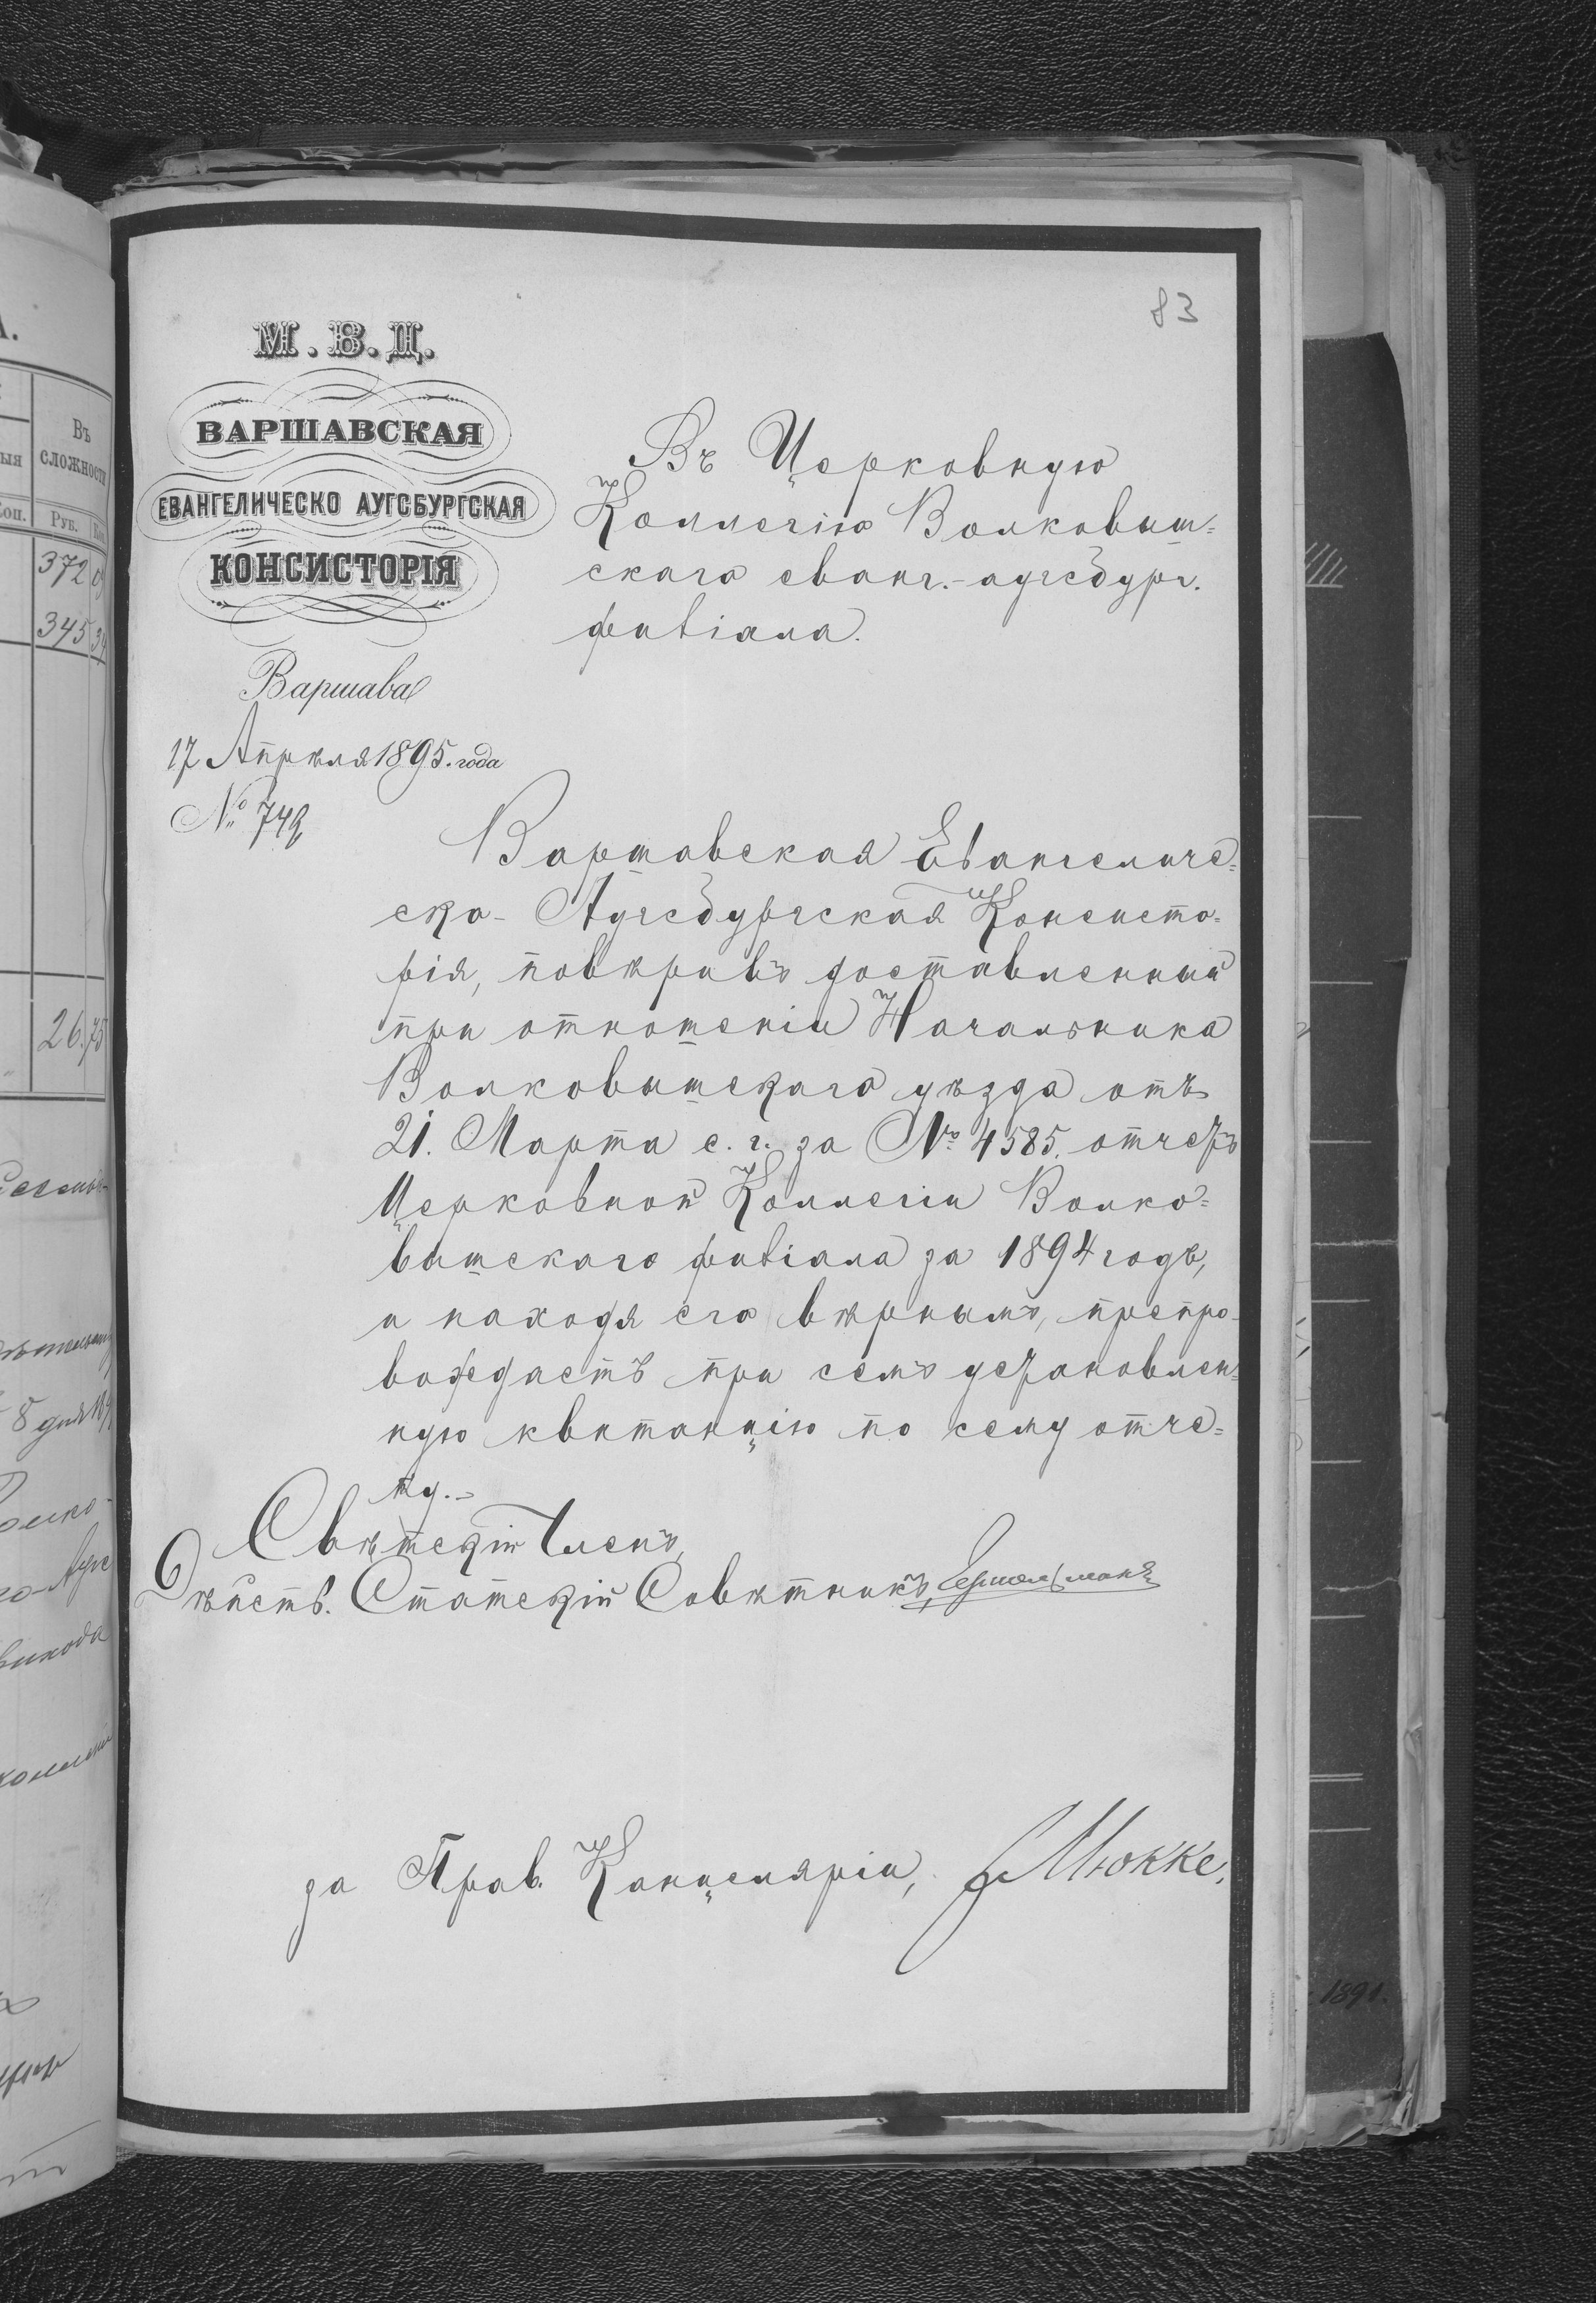 83
М.В.Д.
ВАРШАВСКАЯ
ЕВАНГЕЛИЧЕСКО АУГСБУРГСКАЯ
КОНСИСТОРІЯ
Варшава
17 Апрѣля 1895. года
№ 742
Въ Церковную
Коллегію Волковыш=
скаго еванг.-аугсбург.
филіала.
Варшавская Евангеличе=
ско-Аугсбургская Консисто=
рія, повѣривъ доставленный
при отношеніи Начальника
Волковышскаго уѣзда отъ
21. Марта с. г. за № 4585. отчетъ
Церковной Коллегіи Волко=
вышскаго филіала за 1894 годъ,
и находя его вѣрнымъ, препро-
вождаетъ при семъ установлен=
ную квитанцію по сему отче=
ту.-
Свѣтскій Членъ,
Дѣйств. Статскій Совѣтникъ,
за Прав. Канцеляріи, Мюкке.
Въ
сложности
Руб. Коп.
372
345 34
26.75
1891.